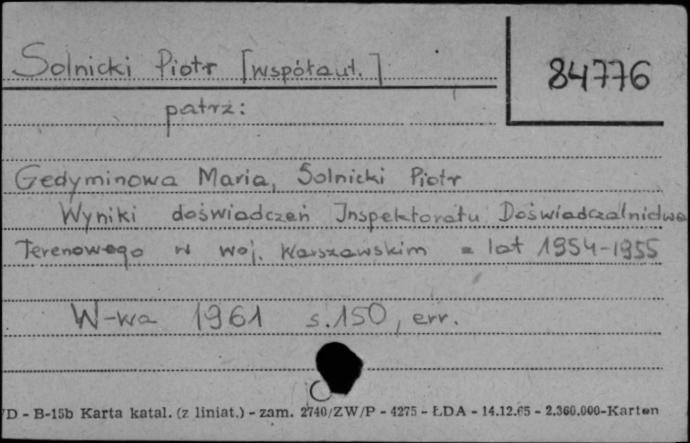 Solnicki Piotr [współaut.]
84776
patrz:
Gedyminowa Maria, Solnicki Piotr
Wyniki doświadczeń Inspektoratu Doświadczalnictwa
Terenowego w woj. Warszawskim z lat 1954-1955
W-wa 1961 s. 150, err.
D - B-15b Karta katal. (z liniat.) - zam. 2740/ZW/P - 4275 - ŁDA - 14.12.65 - 2.360.000-Karten